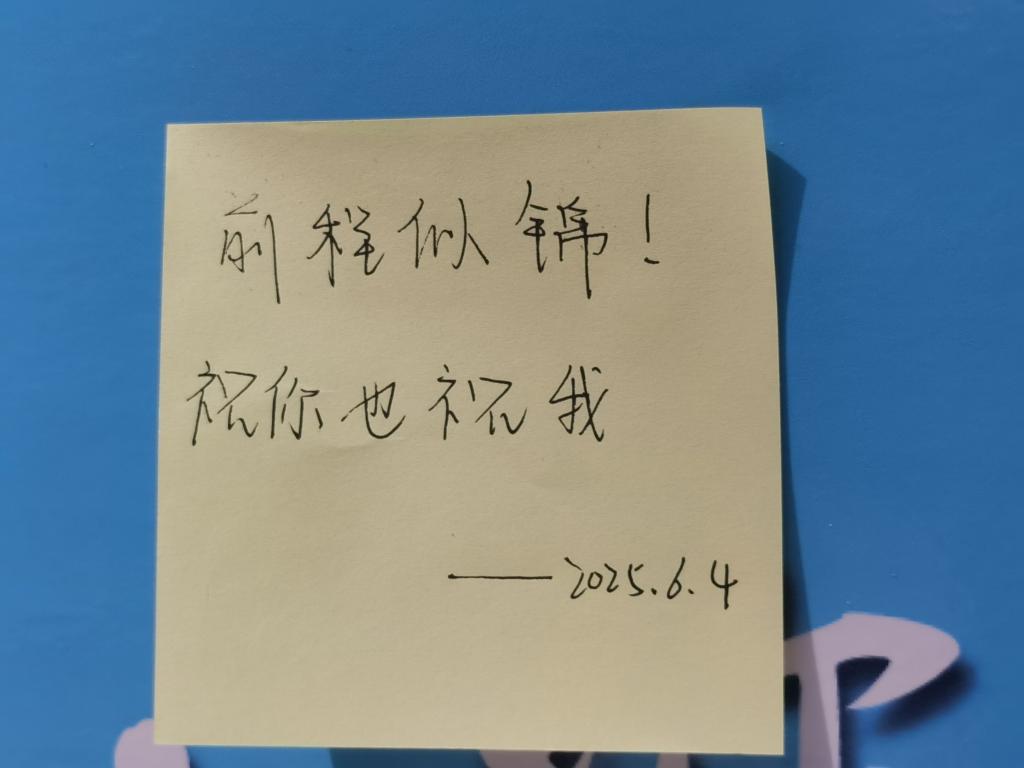 前程似锦!
祝你也祝我
——2025.6.4